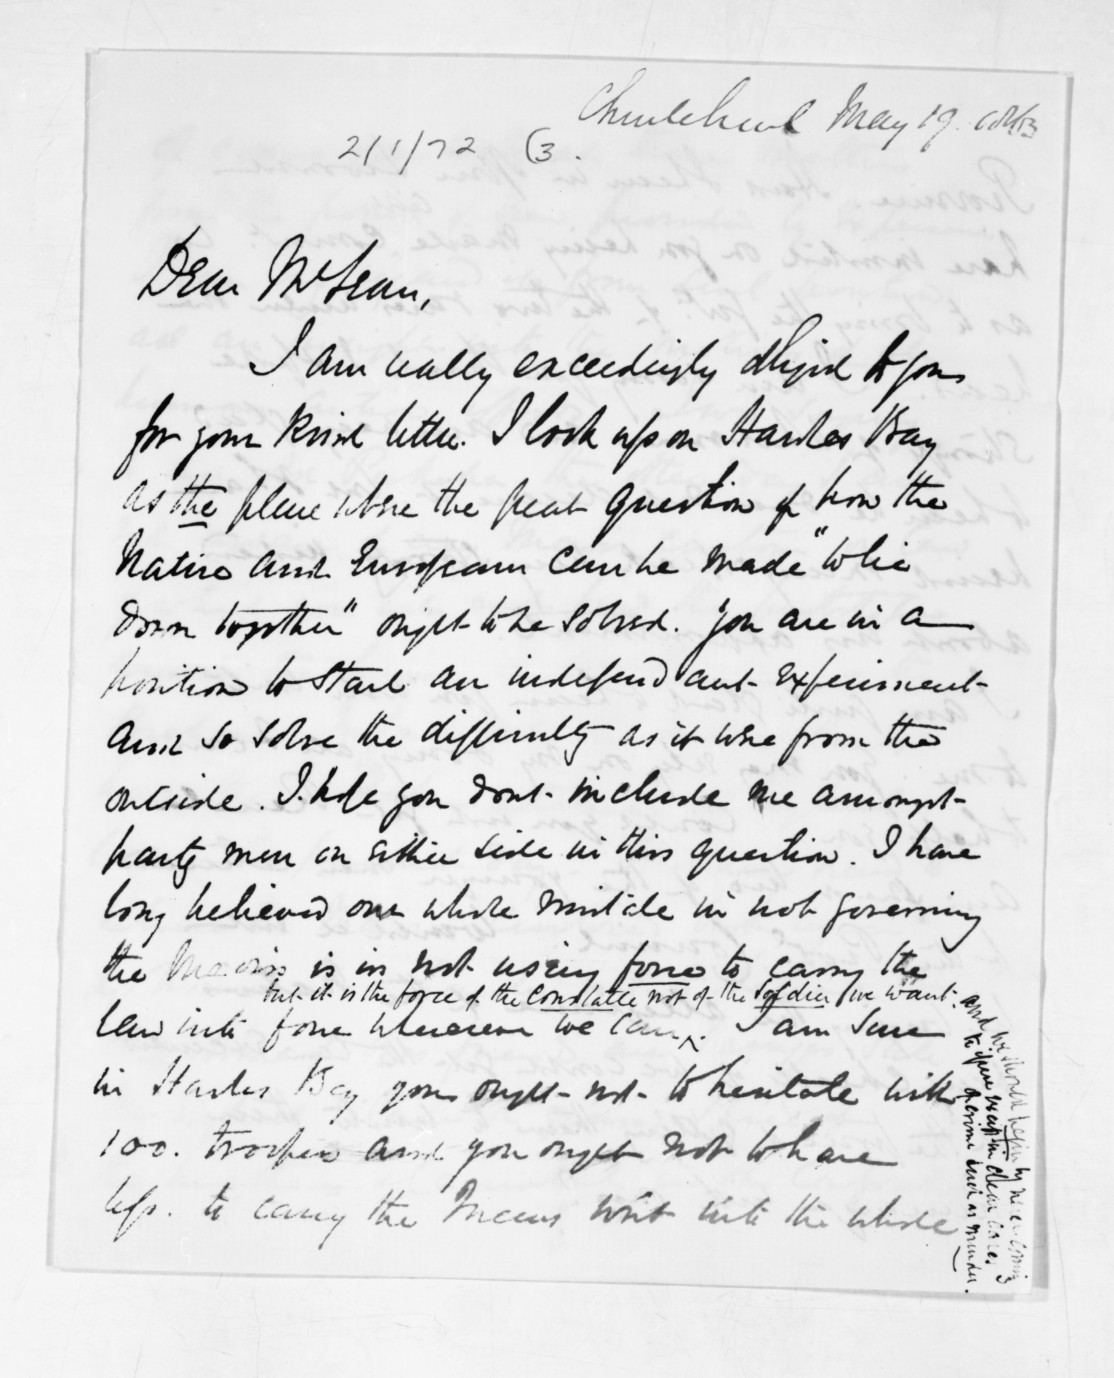 Christchurch May 19. 1863
2/1/72 (3.
Dear McLean,
I am really exceedingly obliged to you
for your kind letter. I look upon Hawkes Bay
as the place where the great question of how the
Native and European can be made "to lie
down together" ought to be solved. You are in a
position to start an independant experiment
and so solve the difficulty as it were from the
outside. I hope you dont include me amongst
party men on either side in this question. I have
long believed our whole mistake in not governing
the Maoris is in not using force to carry the
but it is the force of the constable not of the soldier we want.
law into force wherever we can ^. I am sure
in Hawkes Bay you ought not to hesitate with
100. troopers and you ought not to have
less. to carry the Queens writ into the whole
and we should begin by
to give except in clear cases
of crime such as murder.